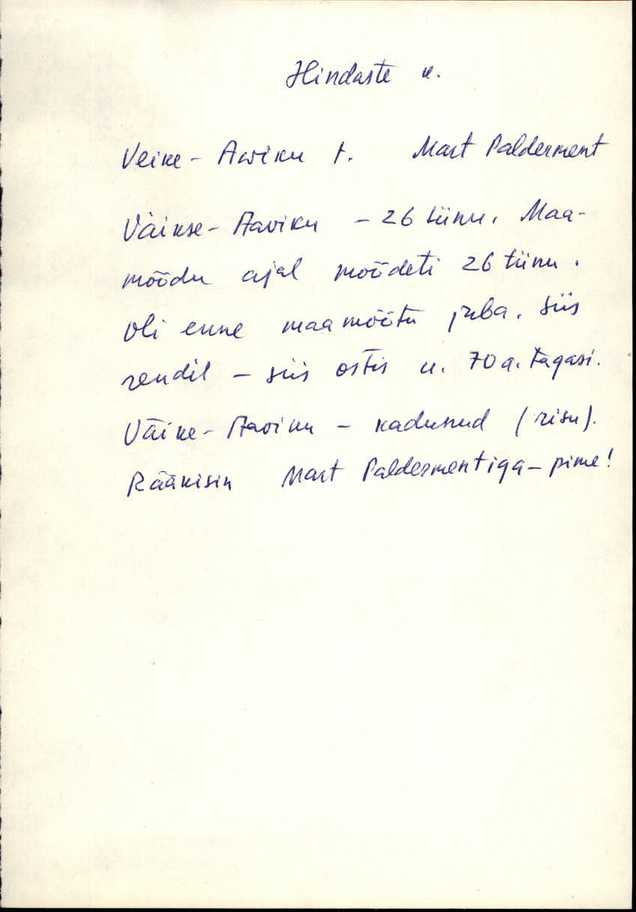 Hindaste k.
Veike-Aaviku t. Mart Palderment
Väikse-Aaviku - 26 tiinu. Maa-
mõõdu ajal mõõdeti 26 tiinu.
oli enne maamõõtu juba. Siis
rendil - siis ostis u. 70 a. tagasi.
Väike-Aaviku - kadunud (risu).
Rääkisin Mart Paldermentiga - pime!